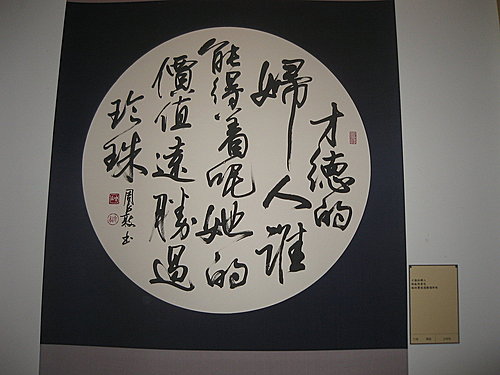 才德的
婦人誰
能得着呢她的
價值遠勝過
珍珠